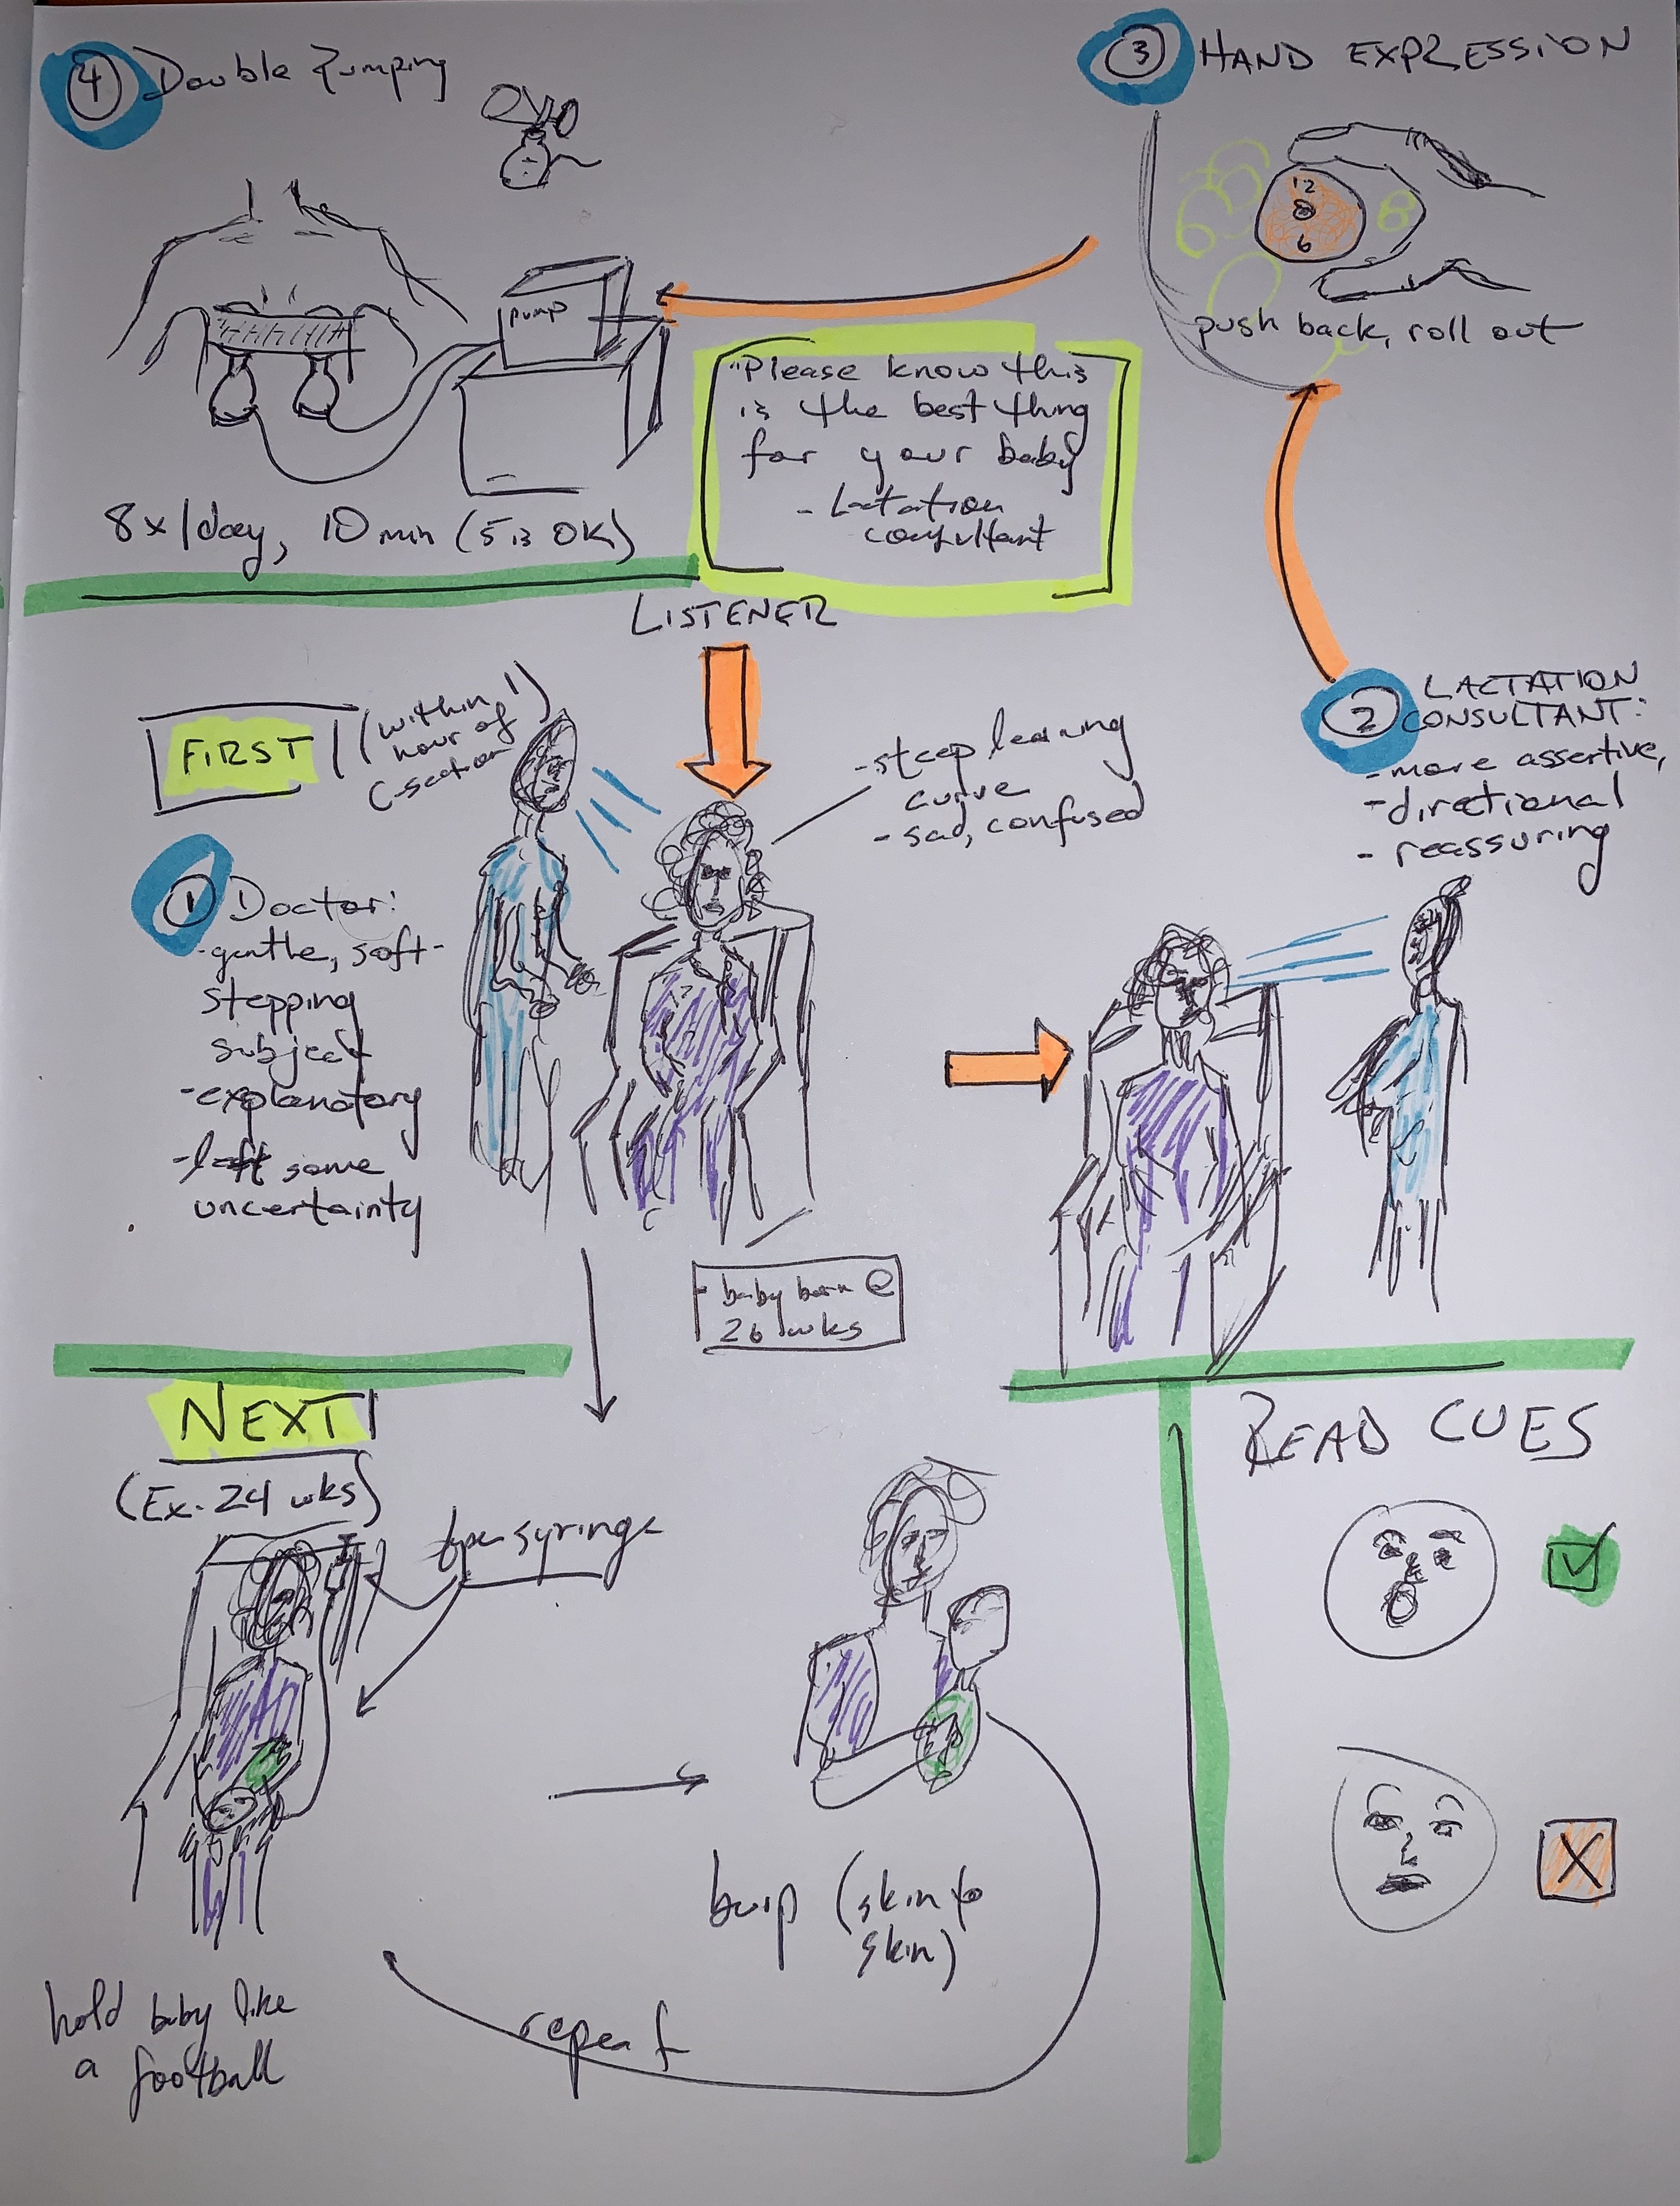 4 Double Pumping
3 HAND EXPRESSION
12
6
push back, roll out
pump
8x/day, 10 min (5 is OK)
"Please know this
is the best thing
for your baby
- Lactation
consultant
LISTENER
FIRST
(within 1
hour of
C-section)
- steep learning
curve
- sad, confused
2 LACTATION
CONSULTANT:
- more assertive,
- directional
- reassuring
1 Doctor:
- gentle, soft-
stepping
subject
- explanatory
- left some
uncertainty
- baby born @
26 wks
NEXT
(Ex. 24 wks)
syringe
hold baby like
a football
burp (skin to
skin)
repeat
READ CUES
X